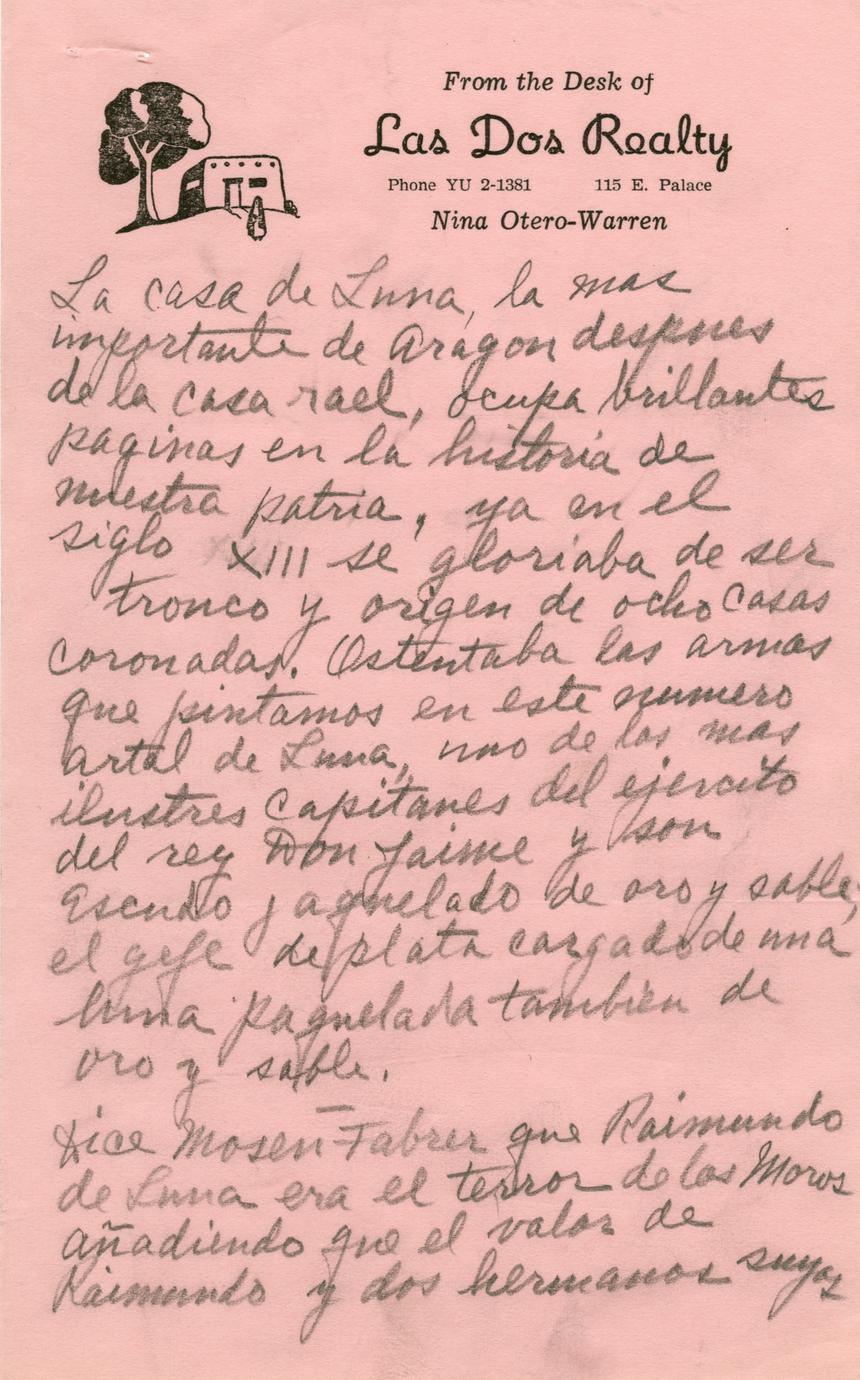 From the Desk of
Las Dos Realty
Phone YU 2-1381 115 E. Palace
Nina Otero-Warren
La casa de Luna, la mas
importante de Aragon despues
de la casa rael, ocupa brillantes
paginas en la historia de
nuestra patria, ya en el
siglo XIII se gloriaba de ser
tronco y origen de ocho casas
coronadas. Ostentaba las armas
que pintamos en este numero
artal de Luna, uno de los mas
ilustres capitanes del ejercito
del rey Don Jaime y son
escudo jaquelado de oro y sable,
el gefe de plata cargado de una
luna jaquelada tambien de
oro y sable.
Dice Mosen Fabrer que Raimundo
de Luna era el terror de los Moros
añadiendo que el valor de
Raimundo y dos hermanos suyos